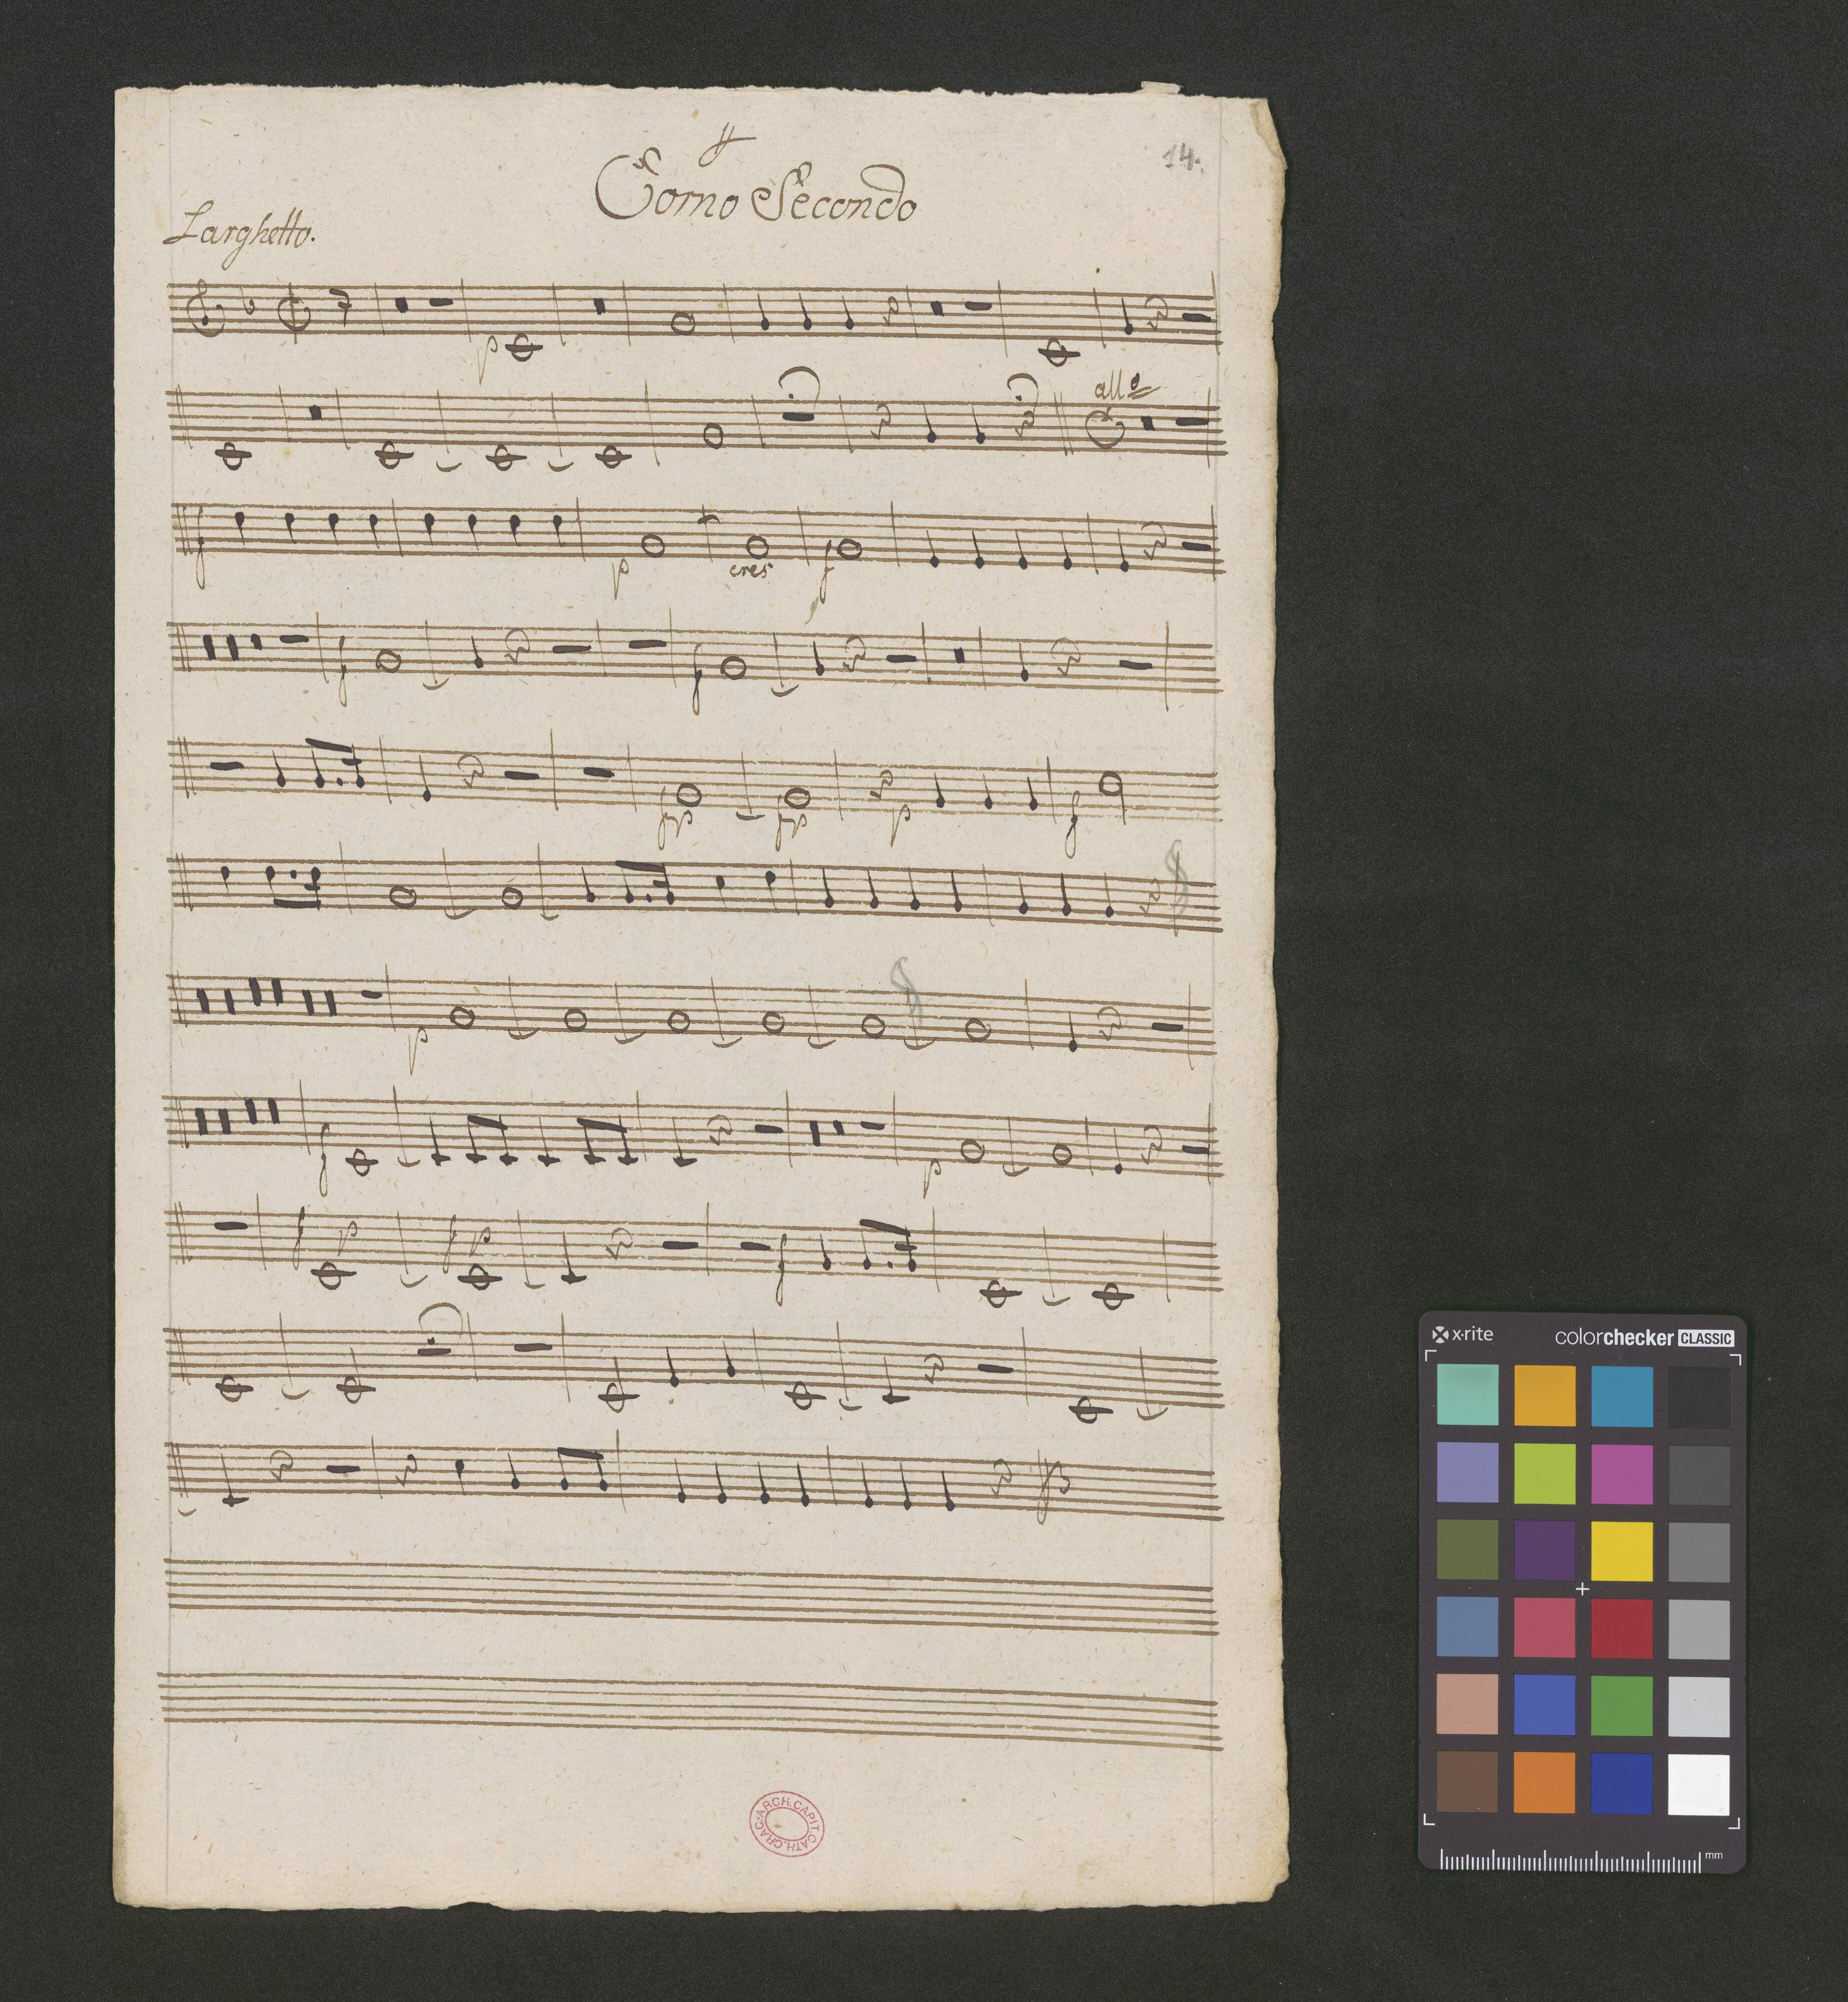 14.
Corno Secondo
Larghetto.
p
all.o
f p cres f
f f
fp fp p f
p
f p
f p f p f
ARCH.CAPIT.CATH.CRAC.
x·rite colorchecker CLASSIC
mm